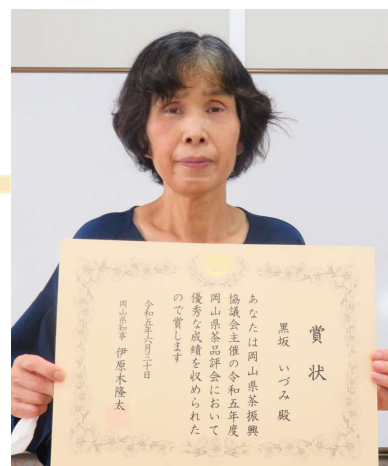 賞状
黒坂 いづみ 殿
あなたは岡山県茶振興
協議会主催の令和五年度
岡山県茶品評会において
優秀な成績を収められた
ので賞します
令和五年六月三十日
岡山県知事 伊原木隆太